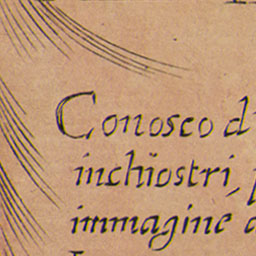 Conosco d
inchiostri,
immagine